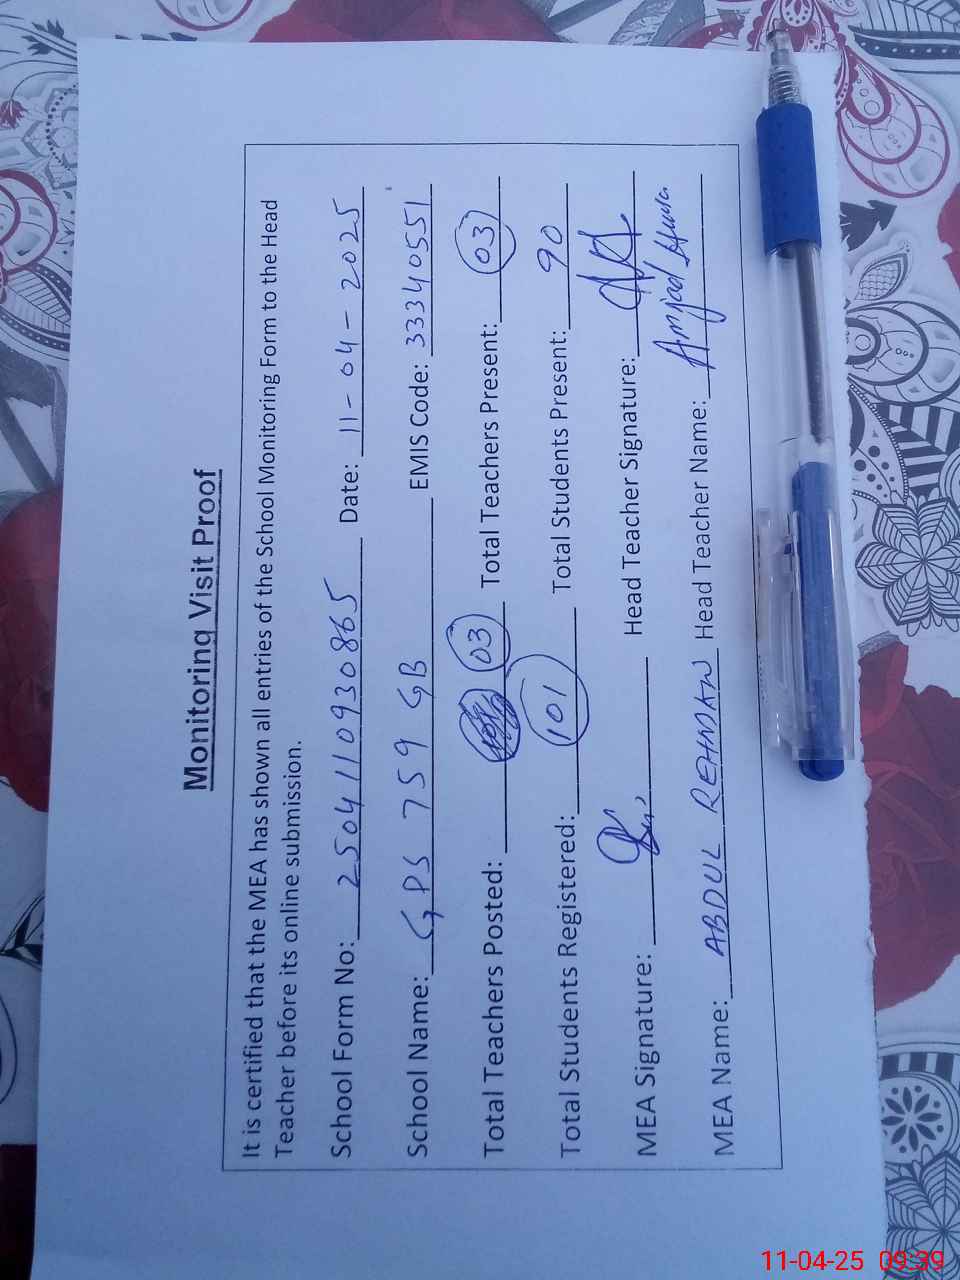 Monitoring Visit Proof
It is certified that the MEA has shown all entries of the School Monitoring Form to the Head
Teacher before its online submission.
School Form No: 2504110930865 Date: 11-04-2025
School Name: GPS 759 GB EMIS Code: 33340551
Total Teachers Posted: 03 Total Teachers Present: 03
Total Students Registered: 101 Total Students Present: 90
MEA Signature: Head Teacher Signature:
MEA Name: ABDUL REHMAN Head Teacher Name: Amjad
11-04-25 09:39